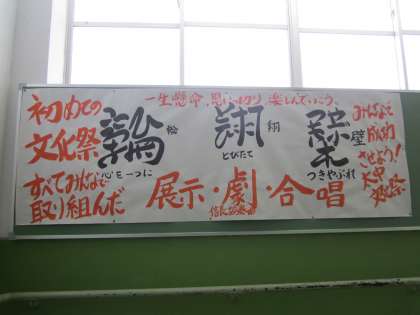 初めての
文化祭
すべてみんなで
取り組んだ
一生懸命、思いっ切り、楽しんでいこう。
絵
心を一つに
翔
翔
とびたて
壁
つきやぶれ
展示・劇・合唱
みんなで
成功
させよう！
文化祭